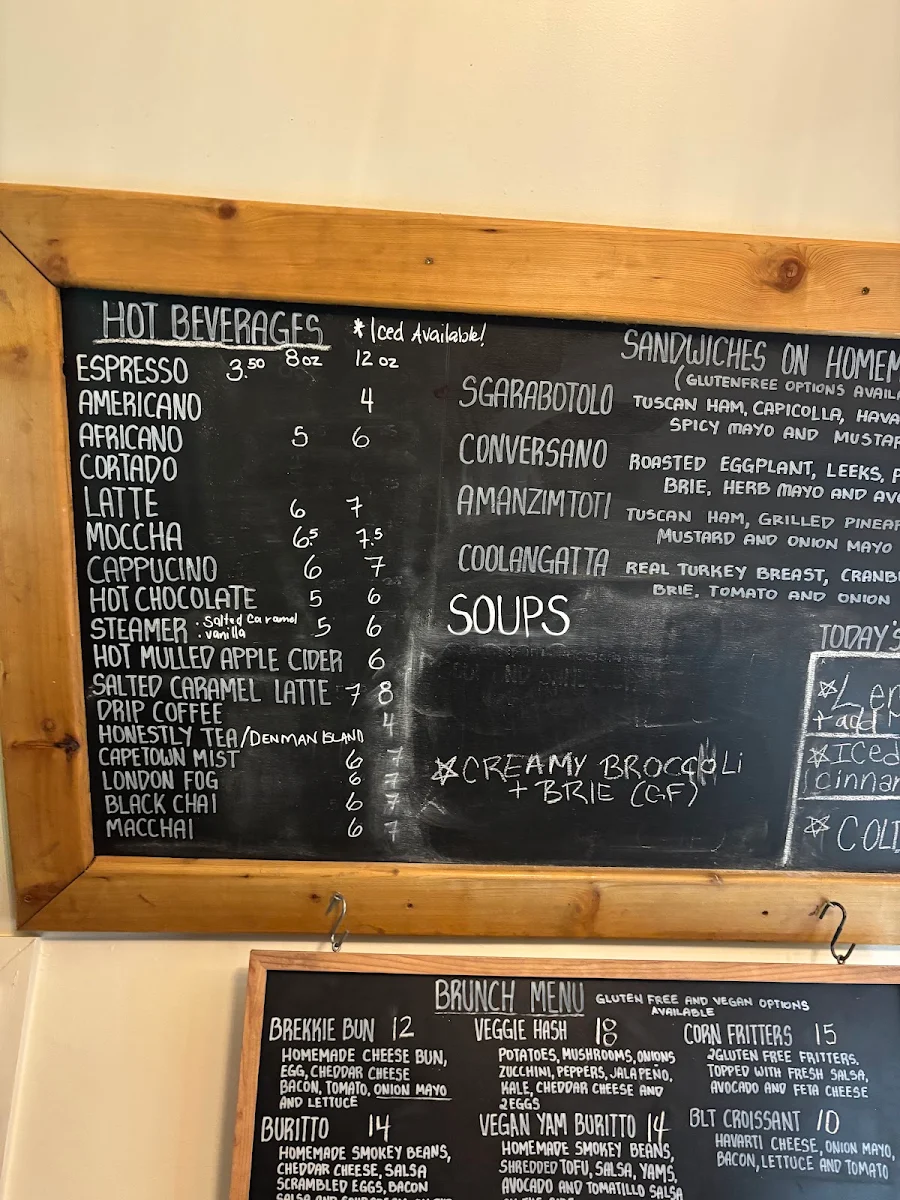 HOT BEVERAGES * Iced Available!
ESPRESSO 3.50 8oz 12 oz
AMERICANO 4
AFRICANO 5 6
CORTADO
LATTE 6 7
MOCCHA 6.5 7.5
CAPPUCINO 6 7
HOT CHOCOLATE 5 6
STEAMER • Salted Caramel • vanilla 5 6
HOT MULLED APPLE CIDER 6
SALTED CARAMEL LATTE 7 8
DRIP COFFEE 4
HONESTLY TEA/DENMAN ISLAND
CAPETOWN MIST 6 7
LONDON FOG 6 7
BLACK CHAI 6 7
MACCHAI 6 7
SANDWICHES ON
(GLUTENFREE OPTIONS
SGARABOTOLO TUSCAN HAM, CAPICOLLA,
SPICY MAYO AND
CONVERSANO ROASTED EGGPLANT, LEEKS,
BRIE, HERB MAYO AND
AMANZIMTOTI TUSCAN HAM, GRILLED
MUSTARD AND ONION MAYO
COOLANGATTA REAL TURKEY BREAST,
BRIE, TOMATO AND ONION
SOUPS
☆CREAMY BROCCOLI
+ BRIE (GF)
TODAY'S
+ add
☆Iced
BRUNCH MENU GLUTEN FREE AND VEGAN OPTIONS
AVAILABLE
BREKKIE BUN 12
HOMEMADE CHEESE BUN,
EGG, CHEDDAR CHEESE
BACON, TOMATO, ONION MAYO
AND LETTUCE
BURITTO 14
HOMEMADE SMOKEY BEANS,
CHEDDAR CHEESE, SALSA
SCRAMBLED EGGS, BACON
VEGGIE HASH 18
POTATOES, MUSHROOMS, ONIONS
ZUCCHINI, PEPPERS, JALAPEÑO,
KALE, CHEDDAR CHEESE AND
2EGGS
VEGAN YAM BURITTO 14
HOMEMADE SMOKEY BEANS,
SHREDDED TOFU, SALSA, YAMS,
AVOCADO AND TOMATILLO SALSA
CORN FRITTERS 15
2GLUTEN FREE FRITTERS,
TOPPED WITH FRESH SALSA,
AVOCADO AND FETA CHEESE
BLT CROISSANT 10
HAVARTI CHEESE, ONION MAYO,
BACON, LETTUCE AND TOMATO